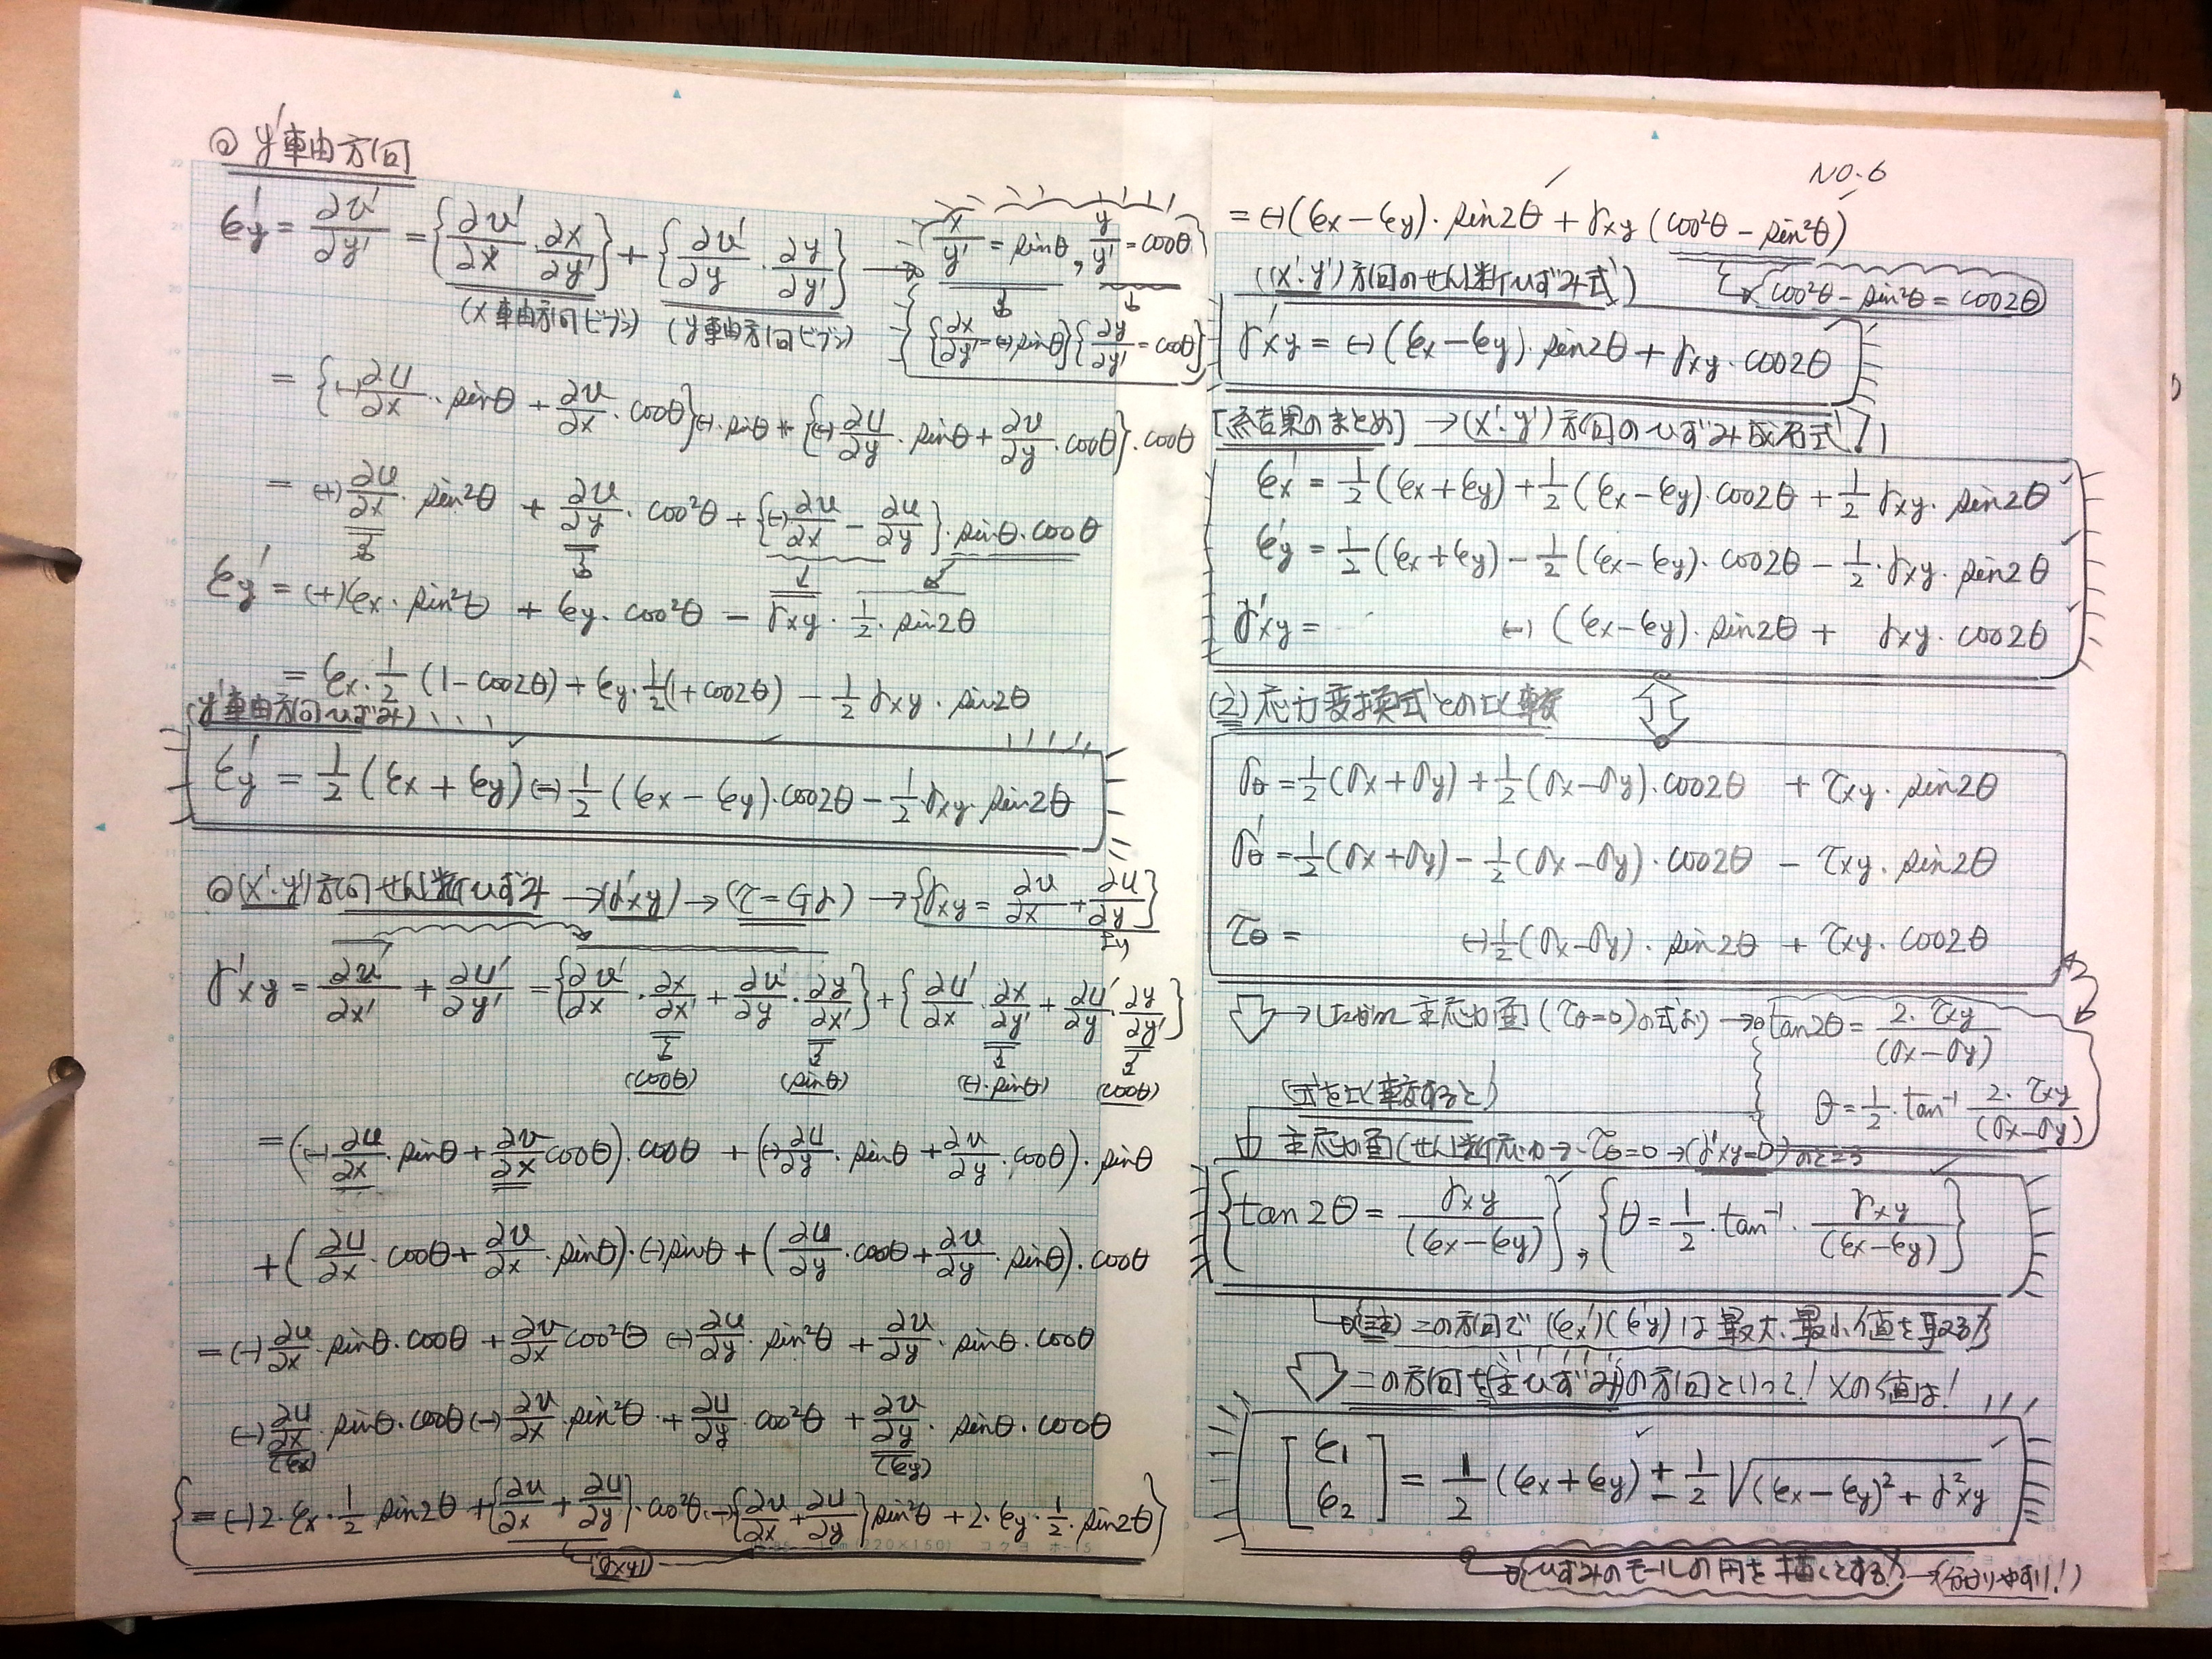 ◎ y'軸方向
εy' = ∂v'/∂y' = {∂v'/∂x · ∂x/∂y'} + {∂v'/∂y · ∂y/∂y'} → x/y' = sinθ, y/y' = cosθ
(x軸方向ビブン) (y軸方向ビブン) {∂x/∂y' = (-)sinθ} {∂y/∂y' = cosθ}
= {(-)∂u/∂x · sinθ + ∂v/∂x · cosθ}(-)·sinθ + {(-)∂u/∂y · sinθ + ∂v/∂y · cosθ}·cosθ
= (+)∂u/∂x · sin²θ + ∂v/∂y · cos²θ + {(-)∂v/∂x - ∂u/∂y}·sinθ·cosθ
εy' = (+)εx · sin²θ + εy · cos²θ - γxy · 1/2 · sin2θ
= εx · 1/2 (1-cos2θ) + εy · 1/2(1+cos2θ) - 1/2 γxy · sin2θ
(y'軸方向ひずみ)
εy' = 1/2 (εx + εy) (-) 1/2 (εx - εy)·cos2θ - 1/2 γxy · sin2θ
◎(x'·y')方向せん断ひずみ →(γ'xy) → (τ=Gγ) → {γxy = ∂v/∂x + ∂u/∂y}
より
γ'xy = ∂v'/∂x' + ∂u'/∂y' = {∂v'/∂x · ∂x/∂x' + ∂v'/∂y · ∂y/∂x'} + {∂u'/∂x · ∂x/∂y' + ∂u'/∂y · ∂y/∂y'}
(cosθ) (sinθ) ((-)·sinθ) (cosθ)
= ((-)∂u/∂x · sinθ + ∂v/∂x cosθ)·cosθ + ((-)∂u/∂y · sinθ + ∂v/∂y · cosθ)·sinθ
+ (∂u/∂x · cosθ + ∂v/∂x · sinθ)·(-)sinθ + (∂u/∂y · cosθ + ∂v/∂y · sinθ)·cosθ
= (-)∂u/∂x · sinθ·cosθ + ∂v/∂x cos²θ (-) ∂u/∂y · sin²θ + ∂v/∂y · sinθ·cosθ
(-)∂u/∂x · sinθ·cosθ (-) ∂v/∂x · sin²θ + ∂u/∂y · cos²θ + ∂v/∂y · sinθ·cosθ
(εx) (εy)
{= (-)2·εx · 1/2 sin2θ + {∂v/∂x + ∂u/∂y}·cos²θ·(-){∂v/∂x + ∂u/∂y}sin²θ + 2·εy · 1/2 · sin2θ}
(γxy)
(220×150) コクヨ ホ-15
NO.6
= (-)(εx-εy)·sin2θ + γxy (cos²θ - sin²θ)
((x'·y')方向のせん断ひずみ式) cos²θ - sin²θ = cos2θ
γ'xy = (-)(εx-εy)·sin2θ + γxy·cos2θ
[結果のまとめ] →(x'·y')方向のひずみ成分式!
εx' = 1/2 (εx + εy) + 1/2 (εx - εy)·cos2θ + 1/2 γxy · sin2θ
εy' = 1/2 (εx + εy) - 1/2 (εx - εy)·cos2θ - 1/2 · γxy · sin2θ
γ'xy = (-) (εx-εy)·sin2θ + γxy·cos2θ
(注)応力変換式との比較
σθ = 1/2(σx + σy) + 1/2(σx - σy)·cos2θ + τxy·sin2θ
σθ' = 1/2(σx + σy) - 1/2(σx - σy)·cos2θ - τxy·sin2θ
τθ = (-)1/2(σx-σy)·sin2θ + τxy·cos2θ
→したがって主応力面(τθ=0)の式より → tan2θ = 2·τxy/(σx-σy)
(式を比較すると) θ = 1/2 · tan⁻¹ 2·τxy/(σx-σy)
主応力面(せん断応力→τθ=0→(γ'xy=0)のところ
{tan2θ = γxy/(εx-εy)}, {θ = 1/2 · tan⁻¹ · γxy/(εx-εy)}
→(注)この方向で(εx')(εy')は最大、最小値を取る!
この方向を(主ひずみ)の方向といって! その値は!
[ε1 ε2] = 1/2 (εx + εy) ± 1/2 √((εx-εy)² + γ²xy)
→(ひずみのモールの円を描くとする!) →(分かりやすい!)